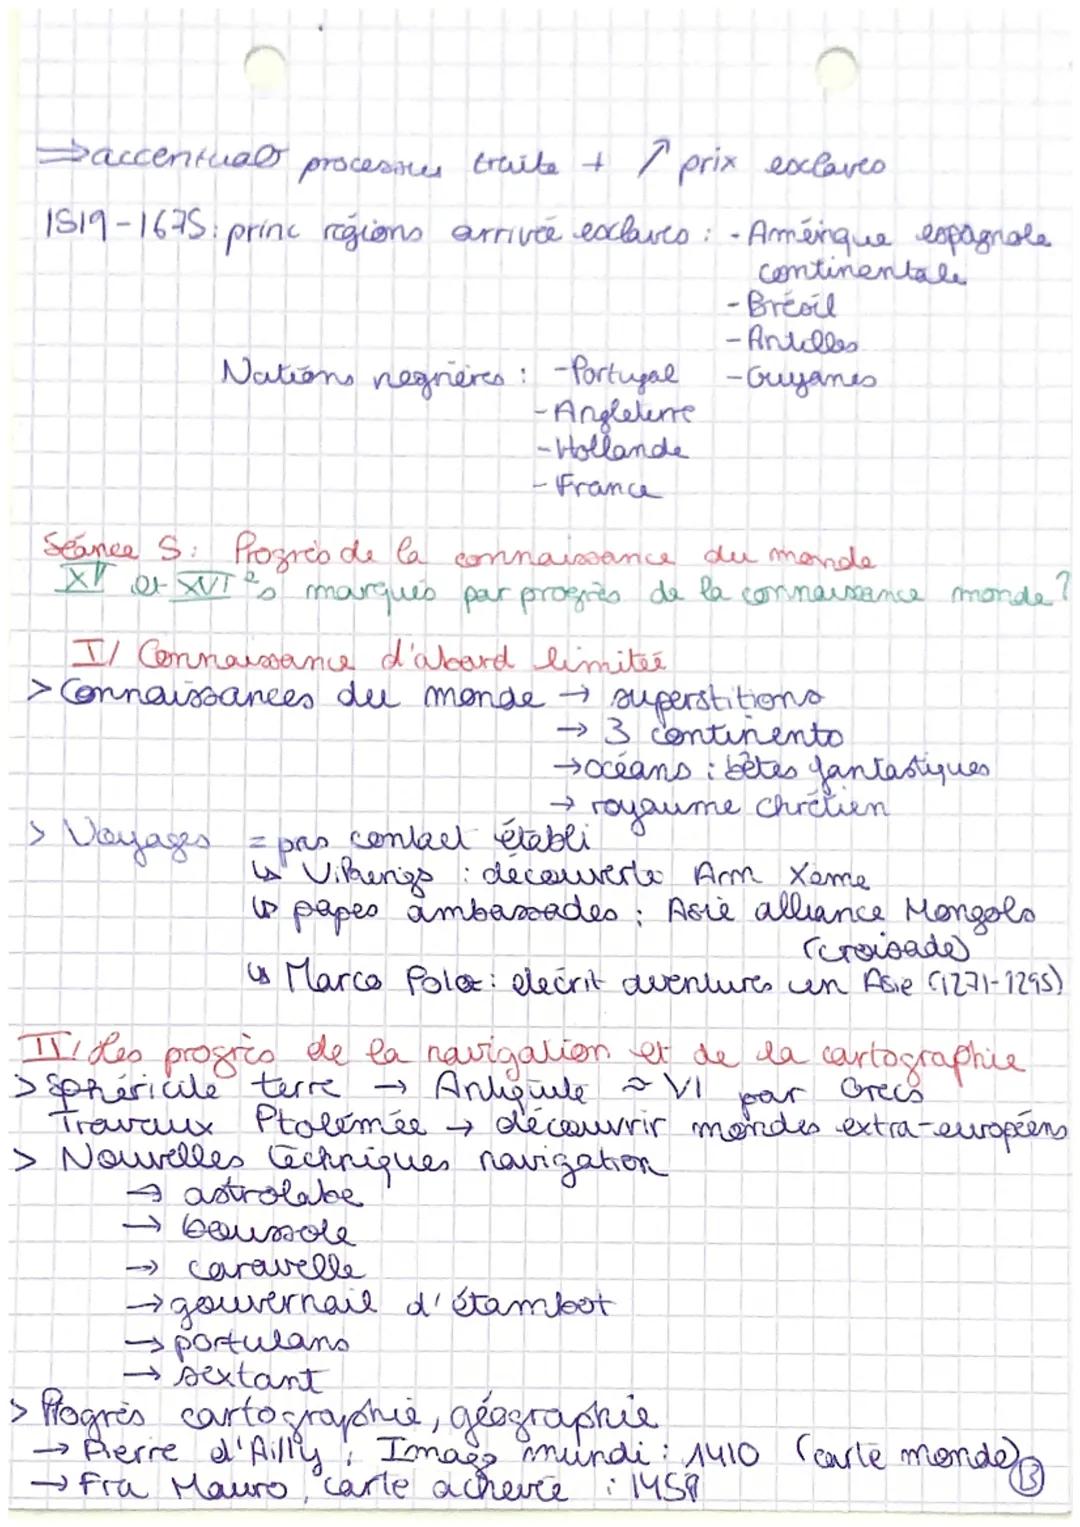 ⇒ accentuat° processus traite + ↗ prix esclaves
1519-1675: princ régions arrivée esclaves : - Amérique espagnole
continentale
- Brésil
- Antilles
Nations négrières : - Portugal - Guyanes
- Angleterre
- Hollande
- France
Séance 5: Progrès de la connaissance du monde
XV et XVIe s marqués par progrès de la connaissance monde?
I/ Connaissance d'abord limitée
> Connaissances du monde → superstitions
→ 3 continents
→ océans : bêtes fantastiques
→ royaume chrétien
> Voyages = pas contact établi
↳ Vikings : découverte Am Xème
↳ papes ambassades : Asie alliance Mongols
(croisade)
↳ Marco Polo : décrit aventures en Asie (1271-1295)
II/ Les progrès de la navigation et de la cartographie
> Sphéricité terre → Antiquité ≈ VI par Grecs
Travaux Ptolémée → découvrir mondes extra-européens
> Nouvelles techniques navigation
→ astrolabe
→ boussole
→ caravelle
→ gouvernail d'étambot
→ portulans
→ sextant
> Progrès cartographie, géographie
→ Pierre d'Ailly, Imago mundi : 1410 (carte monde)
→ Fra Mauro, carte achevée : 1459